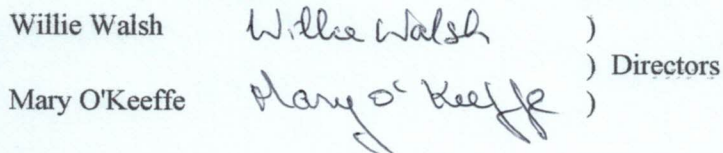 Willie Walsh Willie Walsh )
) Directors
Mary O'Keeffe Mary O'Keeffe )